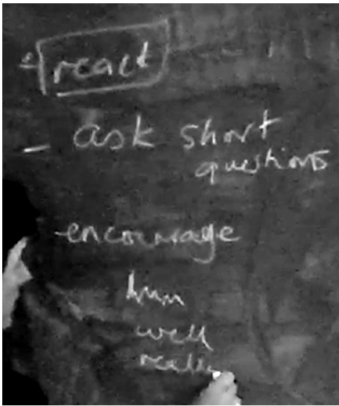 react
- ask short
questions
encourage
hmm
well
really